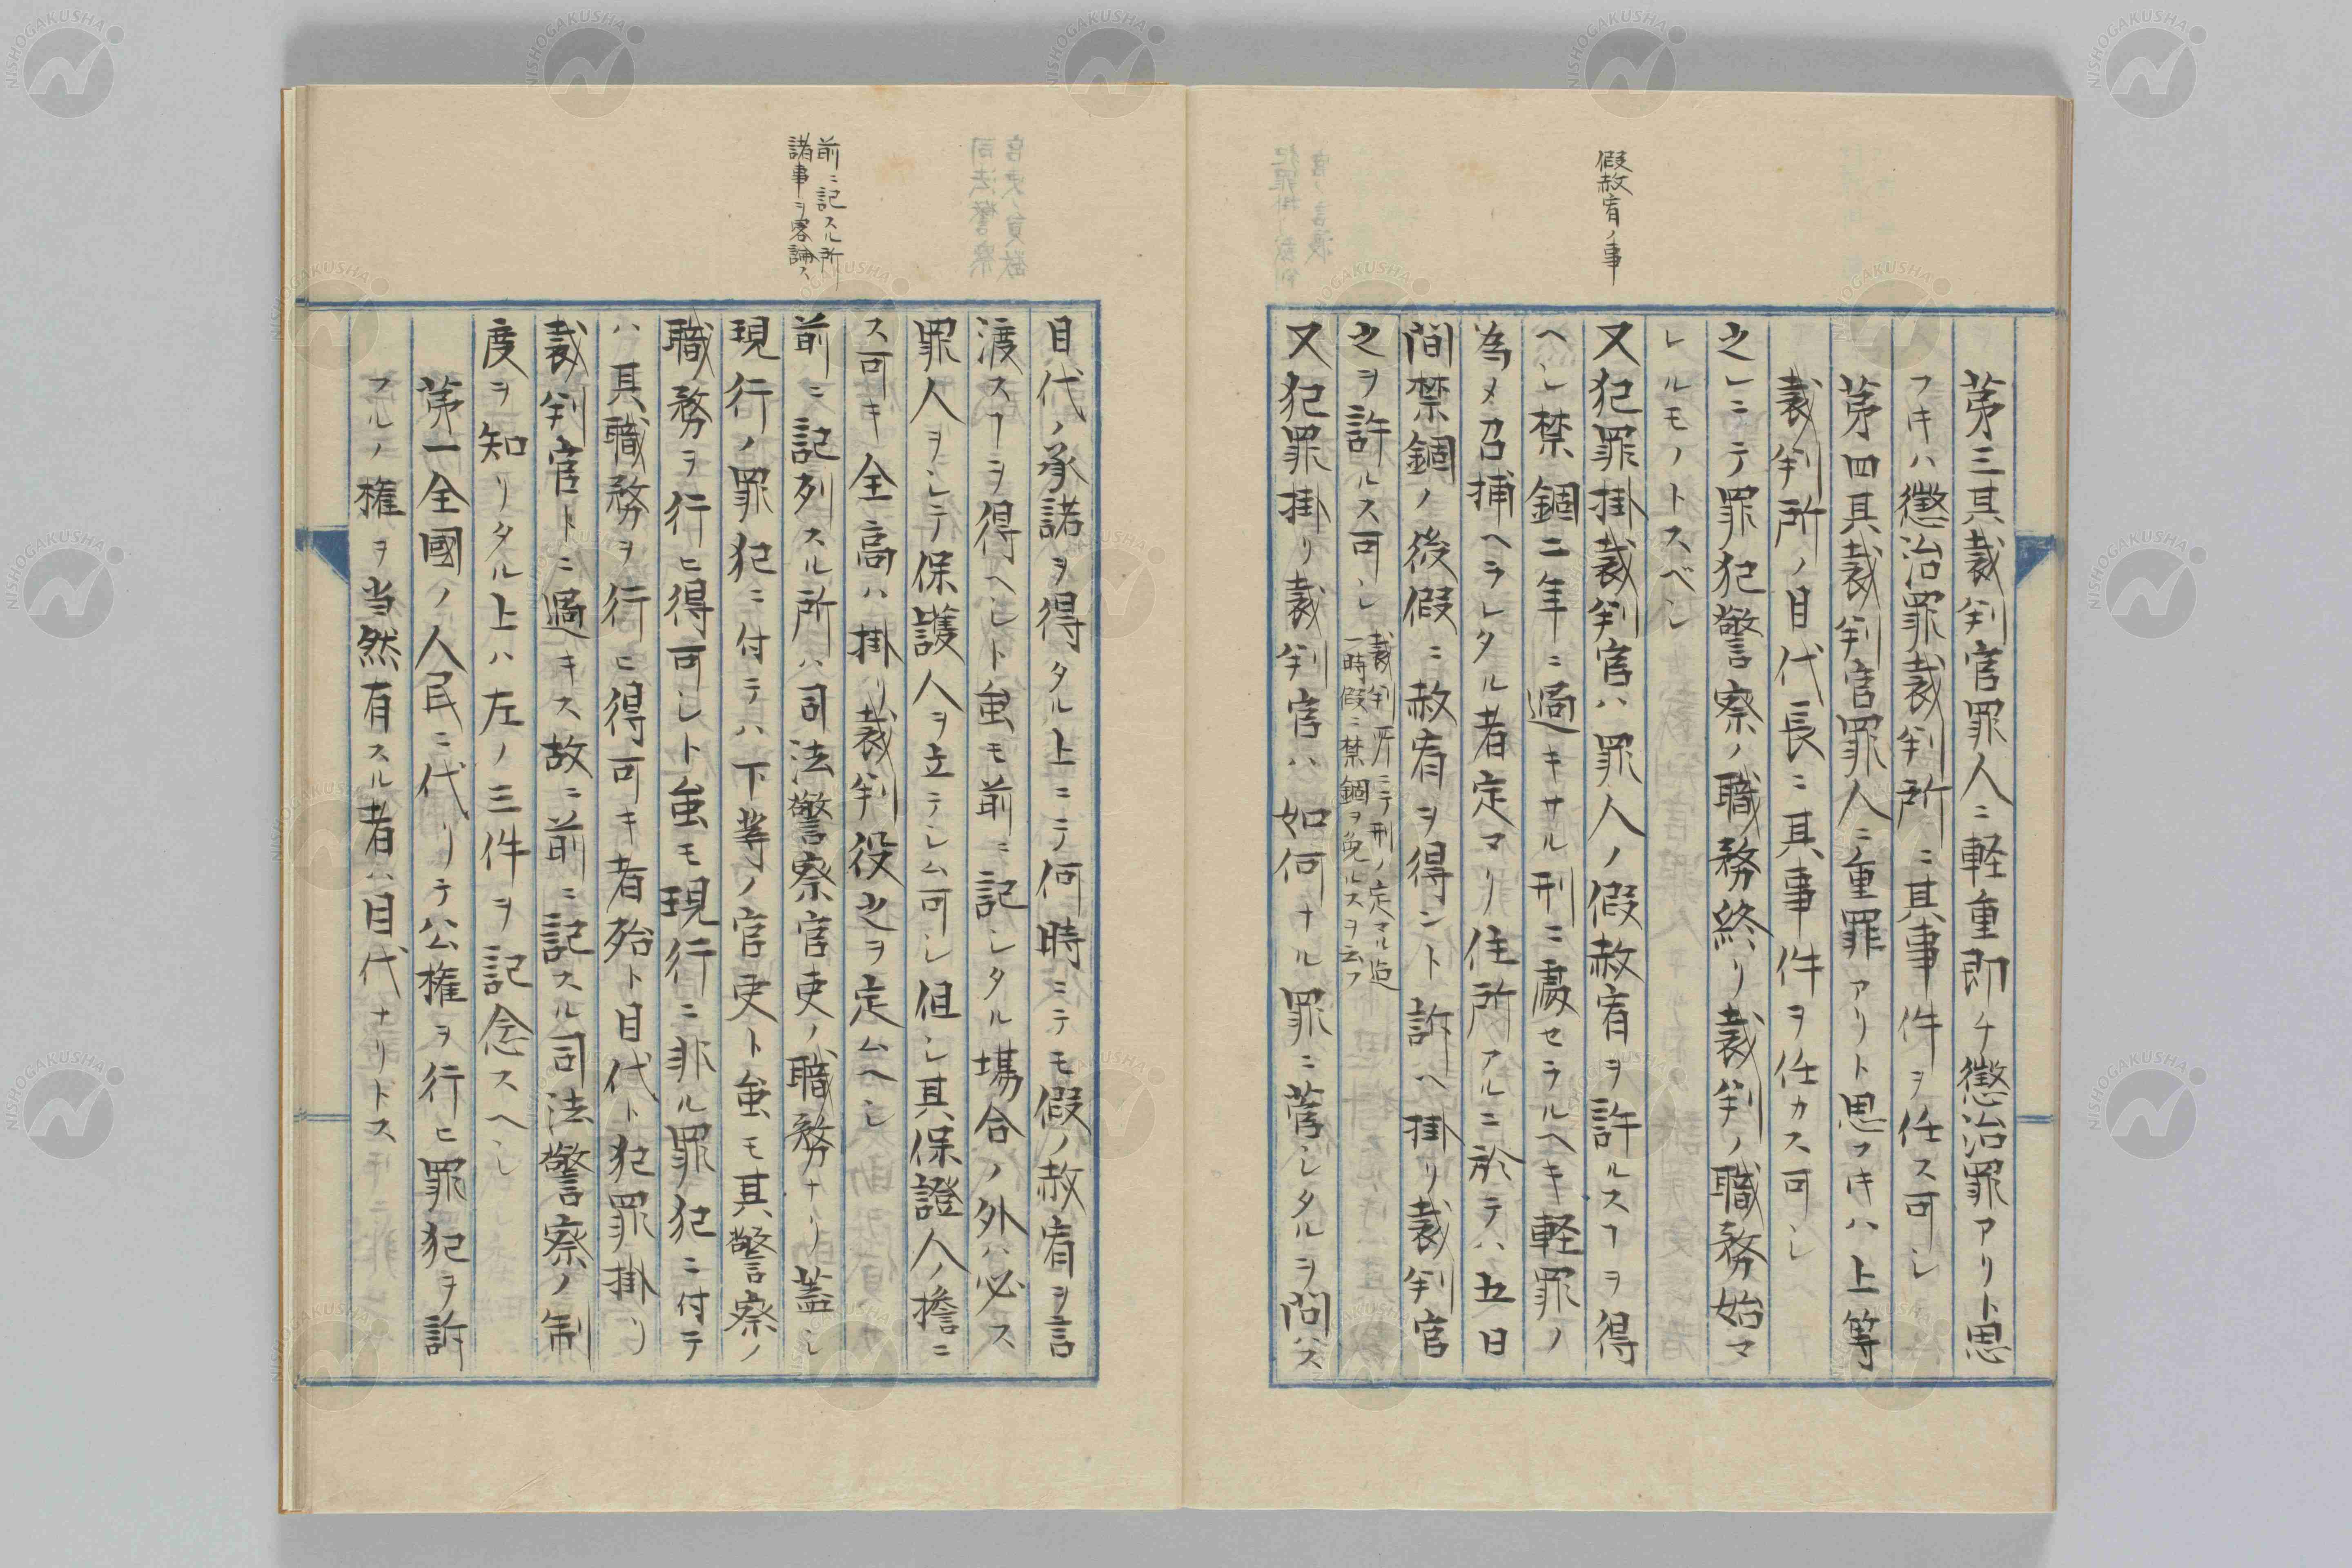 假赦宥ノ事
苐三其裁判官罪人ニ軽重即チ懲治罪アリト思
フキハ懲治罪裁判所ニ其事件ヲ任ス可シ
苐四其裁判官罪人ニ重罪アリト思フキハ上等
裁判所ノ目代長ニ其事件ヲ任カス可シ
之レニテ罪犯警察ノ職務終リ裁判ノ職務始マ
レルモノトスベシ
又犯罪掛裁判官ハ罪人ノ假赦宥ヲ許ルスヿヲ得
ヘシ禁錮二年ニ過キサル刑ニ處セラルヘキ軽罪ノ
為メ召捕ヘラレタル者定マリ住所アルニ於テハ五日
間禁錮ノ後假ニ赦宥ヲ得ント訴ヘ掛リ裁判官
之ヲ許ルス可シ
裁判所ニテ刑ノ定マル迠
一時假ニ禁錮ヲ免ルスヲ云フ
又犯罪掛リ裁判官ハ如何ナル罪ニ當シタルヲ問ハス
前ニ記スル所
諸事ヲ畧論ス
目代ノ承諾ヲ得タル上ニテ何時ニテモ假ノ赦宥ヲ言
渡スヿヲ得ヘシト虽モ前ニ記シタル塲合ノ外ハ必ス
罪人ヲシテ保護人ヲ立テシム可シ但シ其保證人ノ擔ニ
ス可キ全高ハ掛リ裁判役之ヲ定ムヘシ
前ニ記列スル所ハ司法警察官吏ノ職務ナリ蓋シ
現行ノ罪犯ニ付テハ下等ノ官吏ト虽モ其警察ノ
職務ヲ行ヒ得可シト虽モ現行ニ非ル罪犯ニ付テ
ハ其職務ヲ行ヒ得可キ者殆ト目代ト犯罪掛リ
裁判官トニ過キス故ニ前ニ記スル司法警察ノ制
度ヲ知リタル上ハ左ノ三件ヲ記念スヘシ
苐一全國ノ人民ニ代リテ公権ヲ行ヒ罪犯ヲ訴
フルノ権ヲ当然有スル者ハ目代ナリトス